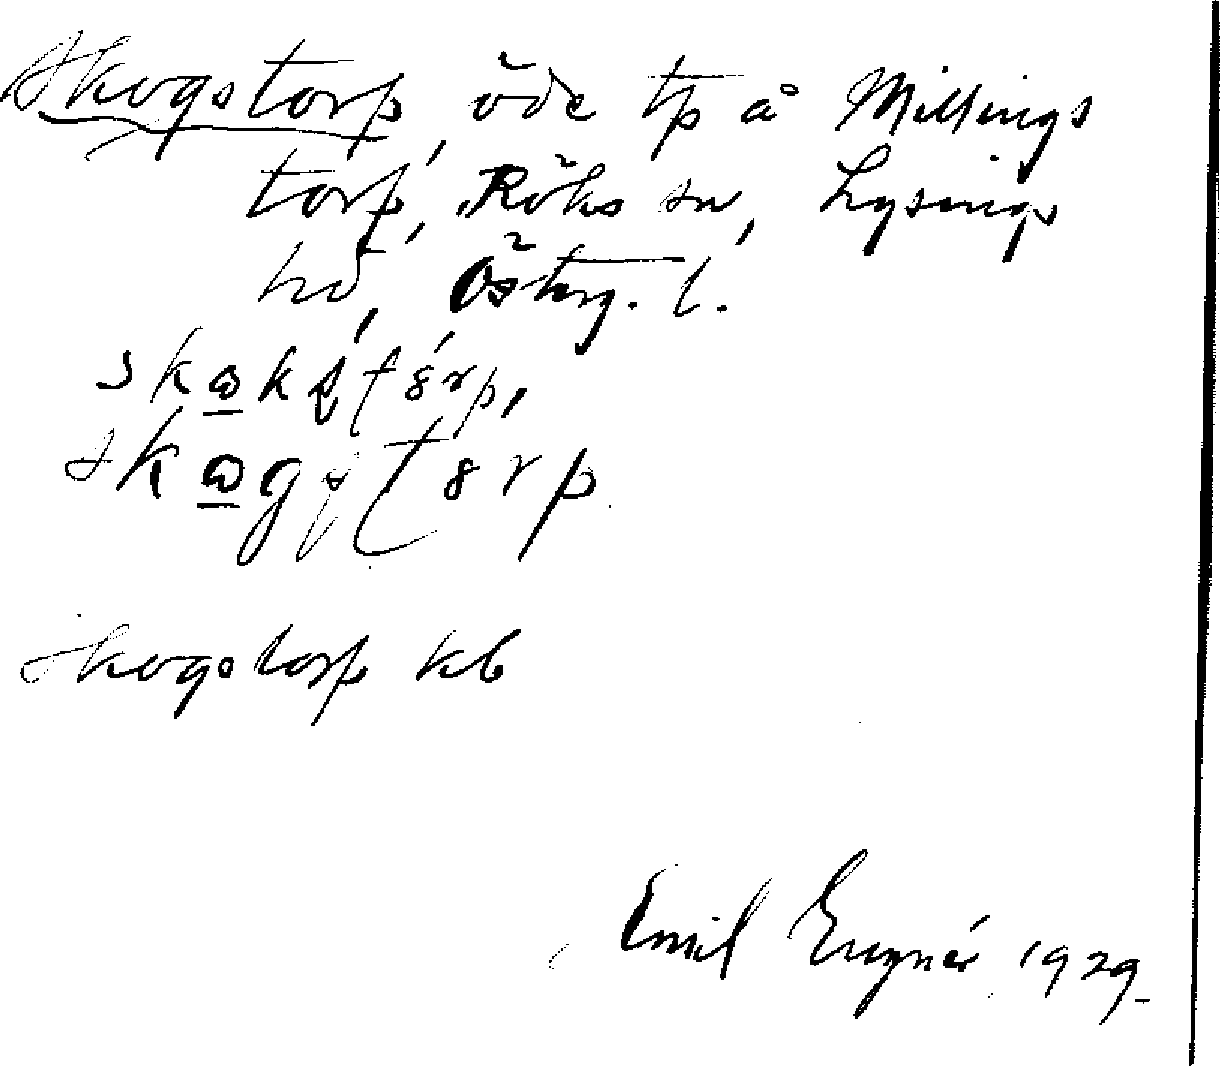 Skogstorp, öde tp å Millings
torp, Röks sn, Lysings
hd, Österg. l.
skɷkʂtȣ́rp,
skɷgʂtȣrp
Skogstorp kb
Emil 1929